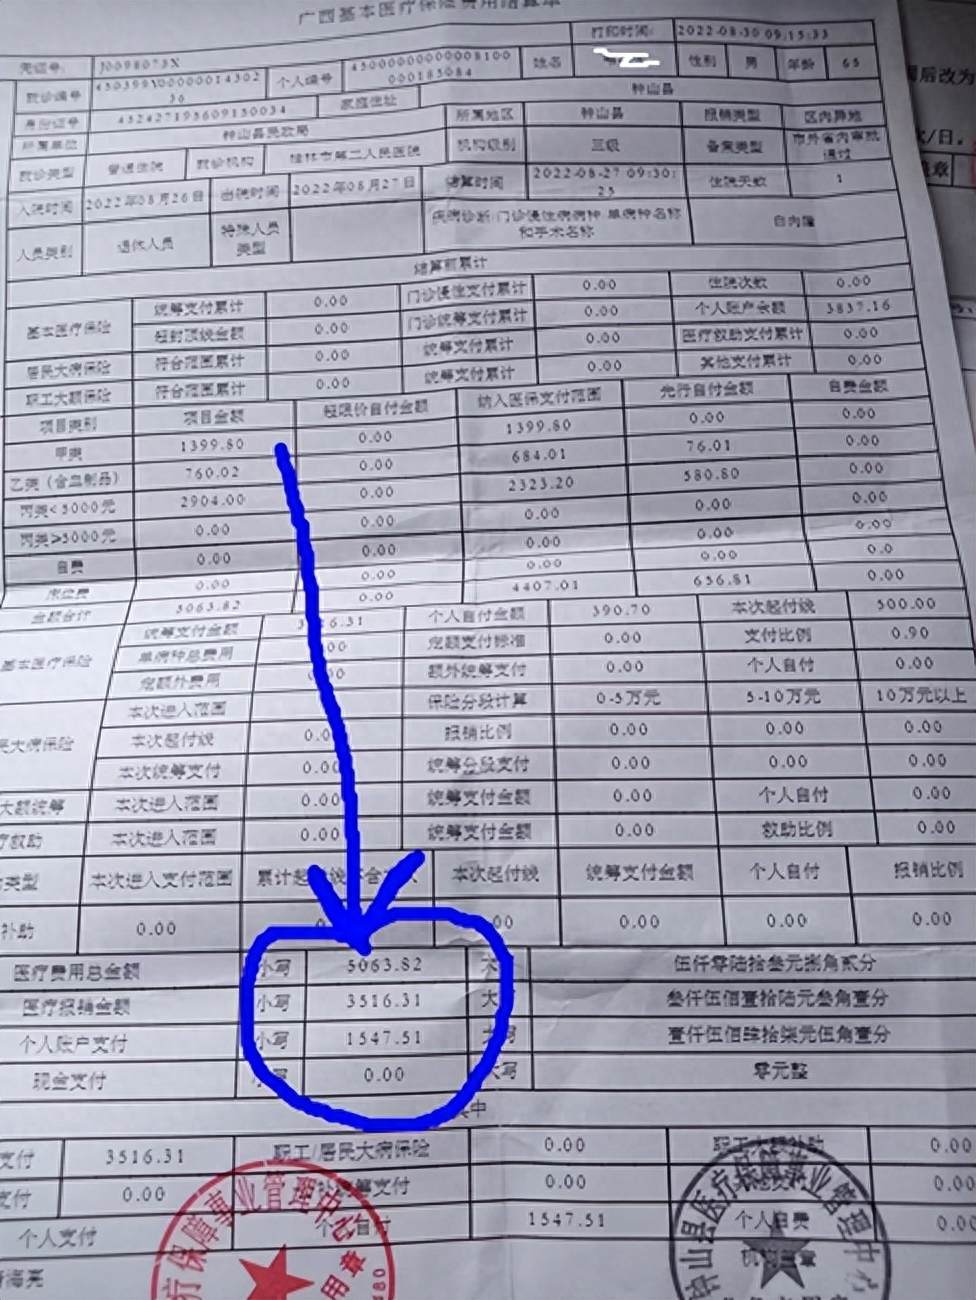 广西基本医疗保险费用结算单
打印时间: 2022-08-30 09:15:33
凭证号: J0098073X
就诊编号 个人编号 姓名 性别 男 年龄 65
身份证号 家庭住址 钟山县
所属单位 钟山县民政局 所属地区 钟山县 报销类型 区内异地
就诊类型 普通住院 就诊机构 桂林市第二人民医院 机构级别 三级 备案类型 市外省内审批通过
入院时间 2022年08月26日 出院时间 2022年08月27日 结算时间 2022-08-27 09:30:25 住院天数 1
人员类别 退休人员 特殊人员类型 疾病诊断/门诊慢性病病种/单病种名称和手术名称 白内障
结算前累计
基本医疗保险 统筹支付累计 0.00 门诊慢性支付累计 0.00 住院次数 0.00
超封顶线金额 0.00 门诊统筹支付累计 0.00 个人账户余额 3837.16
居民大病保险 符合范围累计 0.00 统筹支付累计 0.00 医疗救助支付累计 0.00
职工大额保险 符合范围累计 0.00 统筹支付累计 0.00 其他支付累计 0.00
项目类别 项目金额 超限价自付金额 纳入医保支付范围 先行自付金额 自费金额
甲类 1399.80 0.00 1399.80 0.00 0.00
乙类（含血制品） 760.02 0.00 684.01 76.01 0.00
丙类<5000元 2904.00 0.00 2323.20 580.80 0.00
丙类≥5000元 0.00 0.00 0.00 0.00 0.00
自费 0.00 0.00 0.00 0.00 0.00
床位费 0.00 0.00 0.00 0.00 0.0
金额合计 5063.82 0.00 4407.01 656.81 0.00
基本医疗保险 统筹支付金额 个人自付金额 390.70 本次起付线 500.00
单病种总费用 定额支付标准 0.00 支付比例 0.90
定额外费用 额外统筹支付 0.00 个人自付 0.00
民大病保险 本次进入范围 保险分段计算 0-5万元 5-10万元 10万元以上
本次起付线 0.0 报销比例 0.00 0.00 0.00
本次统筹支付 0.00 统筹分段支付 0.00 0.00 0.00
大额统筹 本次进入范围 0.00 统筹支付金额 0.00 个人自付 0.00
疗救助 本次进入范围 0.00 统筹支付金额 0.00 救助比例 0.00
类型 本次进入支付范围 本次起付线 统筹支付金额 个人自付 报销比例
补助 0.00 00 0.00 0.00 0.00
医疗费用总金额 小写 5063.82 大 伍仟零陆拾叁元捌角贰分
医疗报销金额 小写 3516.31 大 叁仟伍佰壹拾陆元叁角壹分
个人账户支付 小写 1547.51 大写 壹仟伍佰肆拾柒元伍角壹分
现金支付 小写 0.00 大写 零元整
其中
支付 3516.31 职工/居民大病保险 0.00 职工大额补助 0.00
支付 0.00 统筹支付 0.00 0.00
个人支付 个人自付 1547.51 个人自费 0.00
机构盖章
疗保障事业管理中心
用章
钟山县医疗保障事业管理中
后改为
/日。
章